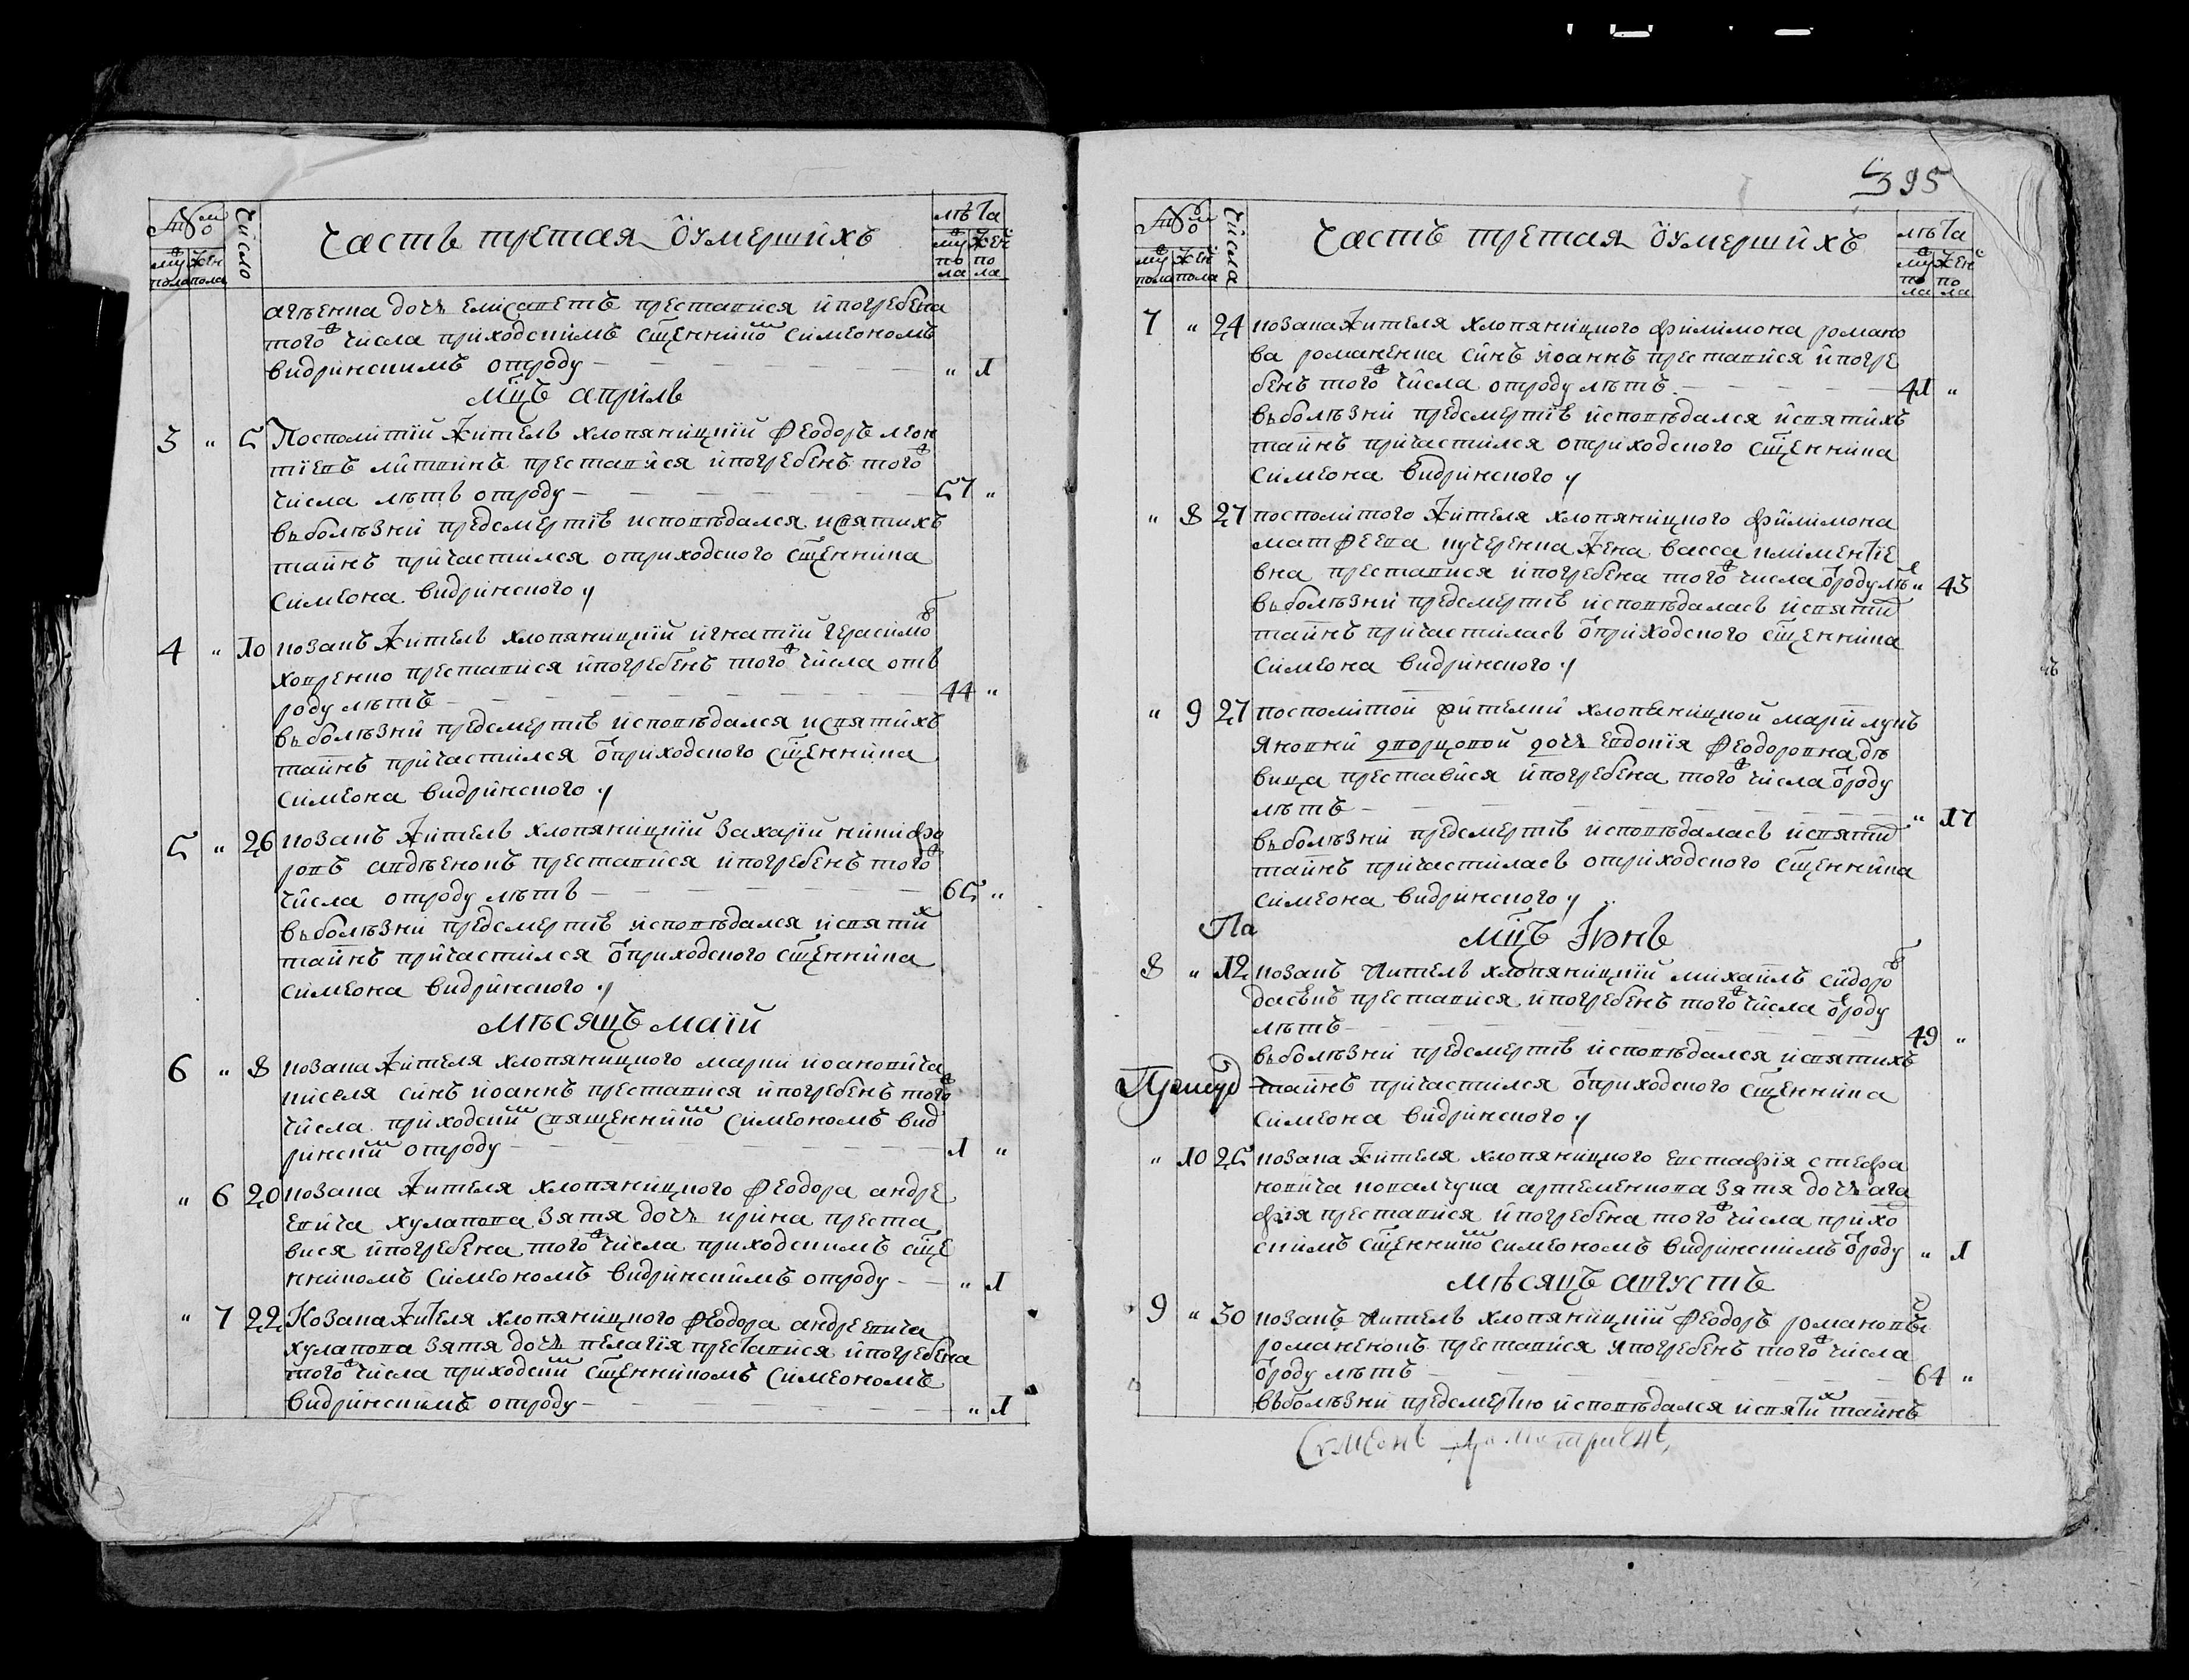 № мо
Число
Часть третая Оумершихъ
лѣта
му жен
пола пола
му жен
по по
ла ла
агѣенка дочъ елисаветъ преставися и погребена
того ж числа приходскимъ сщеннико м симеономъ
видринскимъ отроду — " 1
Мцъ априль
3 " 5 Посполитий житель хлопяницкий Феодоръ леон
тиевъ литвинъ преставися и погребенъ того ж
числа лѣтъ отроду — 57 "
въ болѣзни предсмертнѣ исповѣдался и святихъ
таинъ причастился от приходского сщенника
Симеона видринского
4 " 10 козакъ житель хлопяницкий игнатий герасимо в
ховренко преставися и погребенъ того ж числа отъ
роду лѣтъ — 44 "
въ болѣзни предсмертнѣ исповѣдался и святихъ
таинъ причастился от приходского сщенника
Симеона видринского
5 " 26 козакъ житель хлопяницкий захарий никифо
ровъ авдѣенокъ преставися и погребенъ того ж
числа отроду лѣтъ — 65 "
въ болѣзни предсмертнѣ исповѣдался и святи х
таинъ причастился от приходского сщенника
симеона видринского
Мѣсяцъ маїй
6 " 8 козака жителя хлопяницкого марки иоановича
киселя синъ иоаннъ преставися и погребенъ того ж
числа приходски м священнико м симеономъ вид
рински м отроду — 1 "
" 6 20 козака жителя хлопяницкого Феодора андре
евича хулапова зятя дочъ ирина преста
вися и погребена того ж числа приходскимъ сще
нникомъ симеономъ видринскимъ отроду — " 1
" 7 22 Козака жителя хлопяницкого Феодора андреевича
хулапова зятя дочъ пелагия преставися и погребена
того ж числа приходски м сщенникомъ симеономъ
видринскимъ отроду — " 1
395
№ мо
Числа
Часть третая Оумершихъ
лѣта
му жен
пола пола
му жен
по по
ла ла
7 " 24 козака жителя хлопяницкого филимона романо
ва романенка синъ иоаннъ преставися и погре
бенъ того ж числа отроду лѣтъ — 41 "
въ болѣзни предсмертнѣ исповѣдался и святихъ
таинъ причастился от приходского сщенника
Симеона видринского
" 8 27 посполитого жителя хлопяницкого филимона
матфеева кучеренка жена васса климентие
вна преставися и погребена того ж числа от роду лѣ т " 43
въ болѣзни предсмертнѣ исповѣдалась и святи х
таинъ причастилась от приходского сщенника
Симеона видринского
" 9 27 посполитой жителки хлопяницкой марии лукъ
яновни дворцовой дочъ евдокия Феодоровна дѣ
вица преставися и погребена того ж числа от роду
лѣтъ — " 17
въ болѣзни предсмертнѣ исповѣдалась и святи х
таинъ причастилась от приходского сщенника
симеона видринского
Па
Мцъ Іюнь
8 " 12 козакъ житель хлопяницкий михаилъ сидоро в
преставися и погребенъ того ж числа от роду
лѣтъ — 49 "
въ болѣзни предсмертнѣ исповѣдался и святихъ
таинъ причастился от приходского сщенника
симеона видринского
" 10 25 козака жителя хлопяницкого евстафия стефа
новича ковалчука артеменкова зятя дочъ ага
фия преставися и погребена того ж числа прихо
скимъ сщеннико м симеономъ видринскимъ от роду " 1
Мѣсяцъ августъ
9 " 30 козакъ житель хлопяницкий Феодоръ романовъ
романенокъ преставися и погребенъ того ж числа
от роду лѣтъ — 64 "
въ болѣзни предсмертною исповѣдался и святи х таинъ